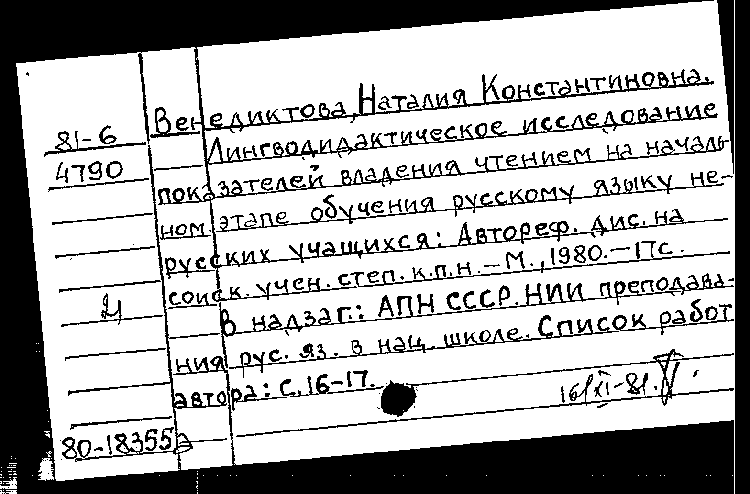 Венедиктова, Наталия Константиновна.
81-6
Лингводидактическое исследование
4790
показателей владения чтением на началь
ном этапе обучения русскому языку не-
русских учащихся: Автореф. дис. на
соиск. учен. степ. к.п.н. – М., 1980. – 17с.
В надзаг.: АПН СССР. НИИ преподава-
ния рус. яз. в нац. школе. Список работ
автора: с. 16-17.
16/XI-81.
80-18355а